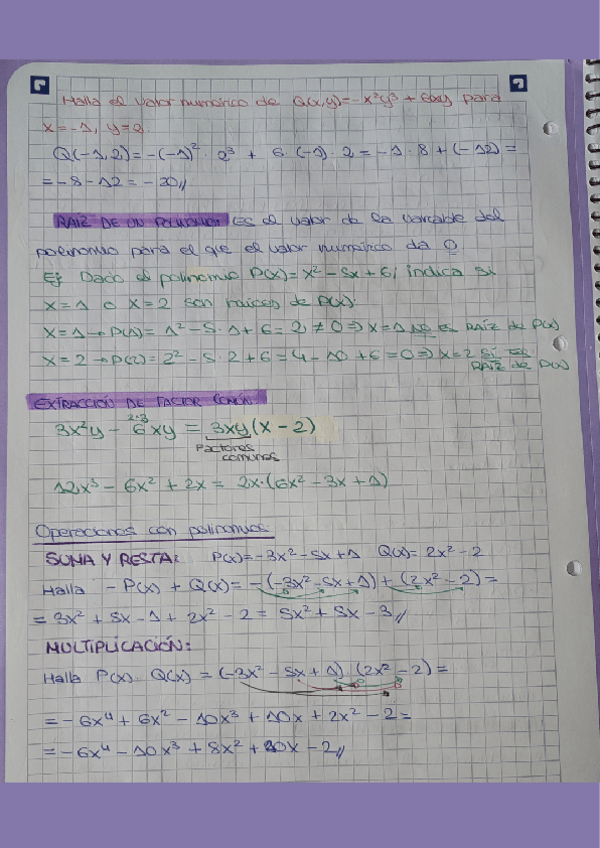 Halla el valor numérico de Q(x,y)=-x²y³ + 6xy para
x=-1, y=2
Q(-1,2)=-(-1)²·2³ + 6·(-1)·2=-1·8+(-12)=
=-8-12=-20//
RAÍZ DE UN POLINOMIO: Es el valor de la variable del
polinomio para el que el valor numérico da 0.
Ej: Dado el polinomio P(x)=x²-5x+6, indica si
x=1 o x=2 son raíces de P(x).
x=1→P(1)=1²-5·1+6=2≠0⇒x=1 NO ES RAÍZ de P(x)
x=2→P(2)=2²-5·2+6=4-10+6=0⇒x=2 SÍ ES
RAÍZ de P(x)
EXTRACCIÓN DE FACTOR COMÚN:
2·3
3x²y - 6xy = 3xy(x-2)
Factores
comunes
12x³-6x²+2x = 2x·(6x²-3x+1)
Operaciones con polinomios
SUMA Y RESTA: P(x)=-3x²-5x+1 Q(x)=2x²-2
Halla -P(x)+Q(x)=-(-3x²-5x+1)+(2x²-2)=
=3x²+5x-1+2x²-2=5x²+5x-3//
MULTIPLICACIÓN:
Halla P(x)·Q(x)=(-3x²-5x+1)·(2x²-2)=
=-6x⁴+6x²-10x³+10x+2x²-2=
=-6x⁴-10x³+8x²+10x-2//